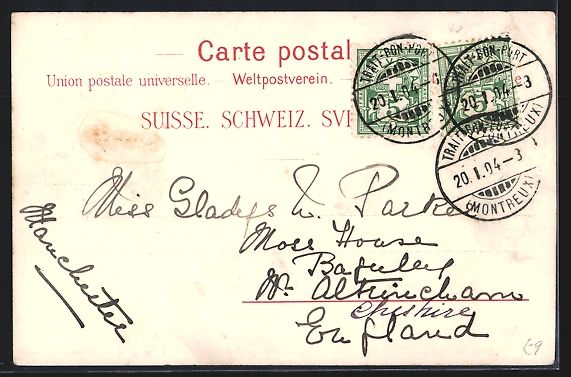 Carte postal
Union postale universelle. — Weltpostverein. —
SUISSE. SCHWEIZ. SVI
TRAIT-BON-PORT
20.I.04
(MONTREUX)
TRAIT-BON-PORT
20.I.04-3
(MONTREUX)
TRAIT-BON-PORT
20.I.04-3
(MONTREUX)
Miss Gladys W. Parke
Moss House
Baguley
Nr. Altrincham
Cheshire
England
Manchester